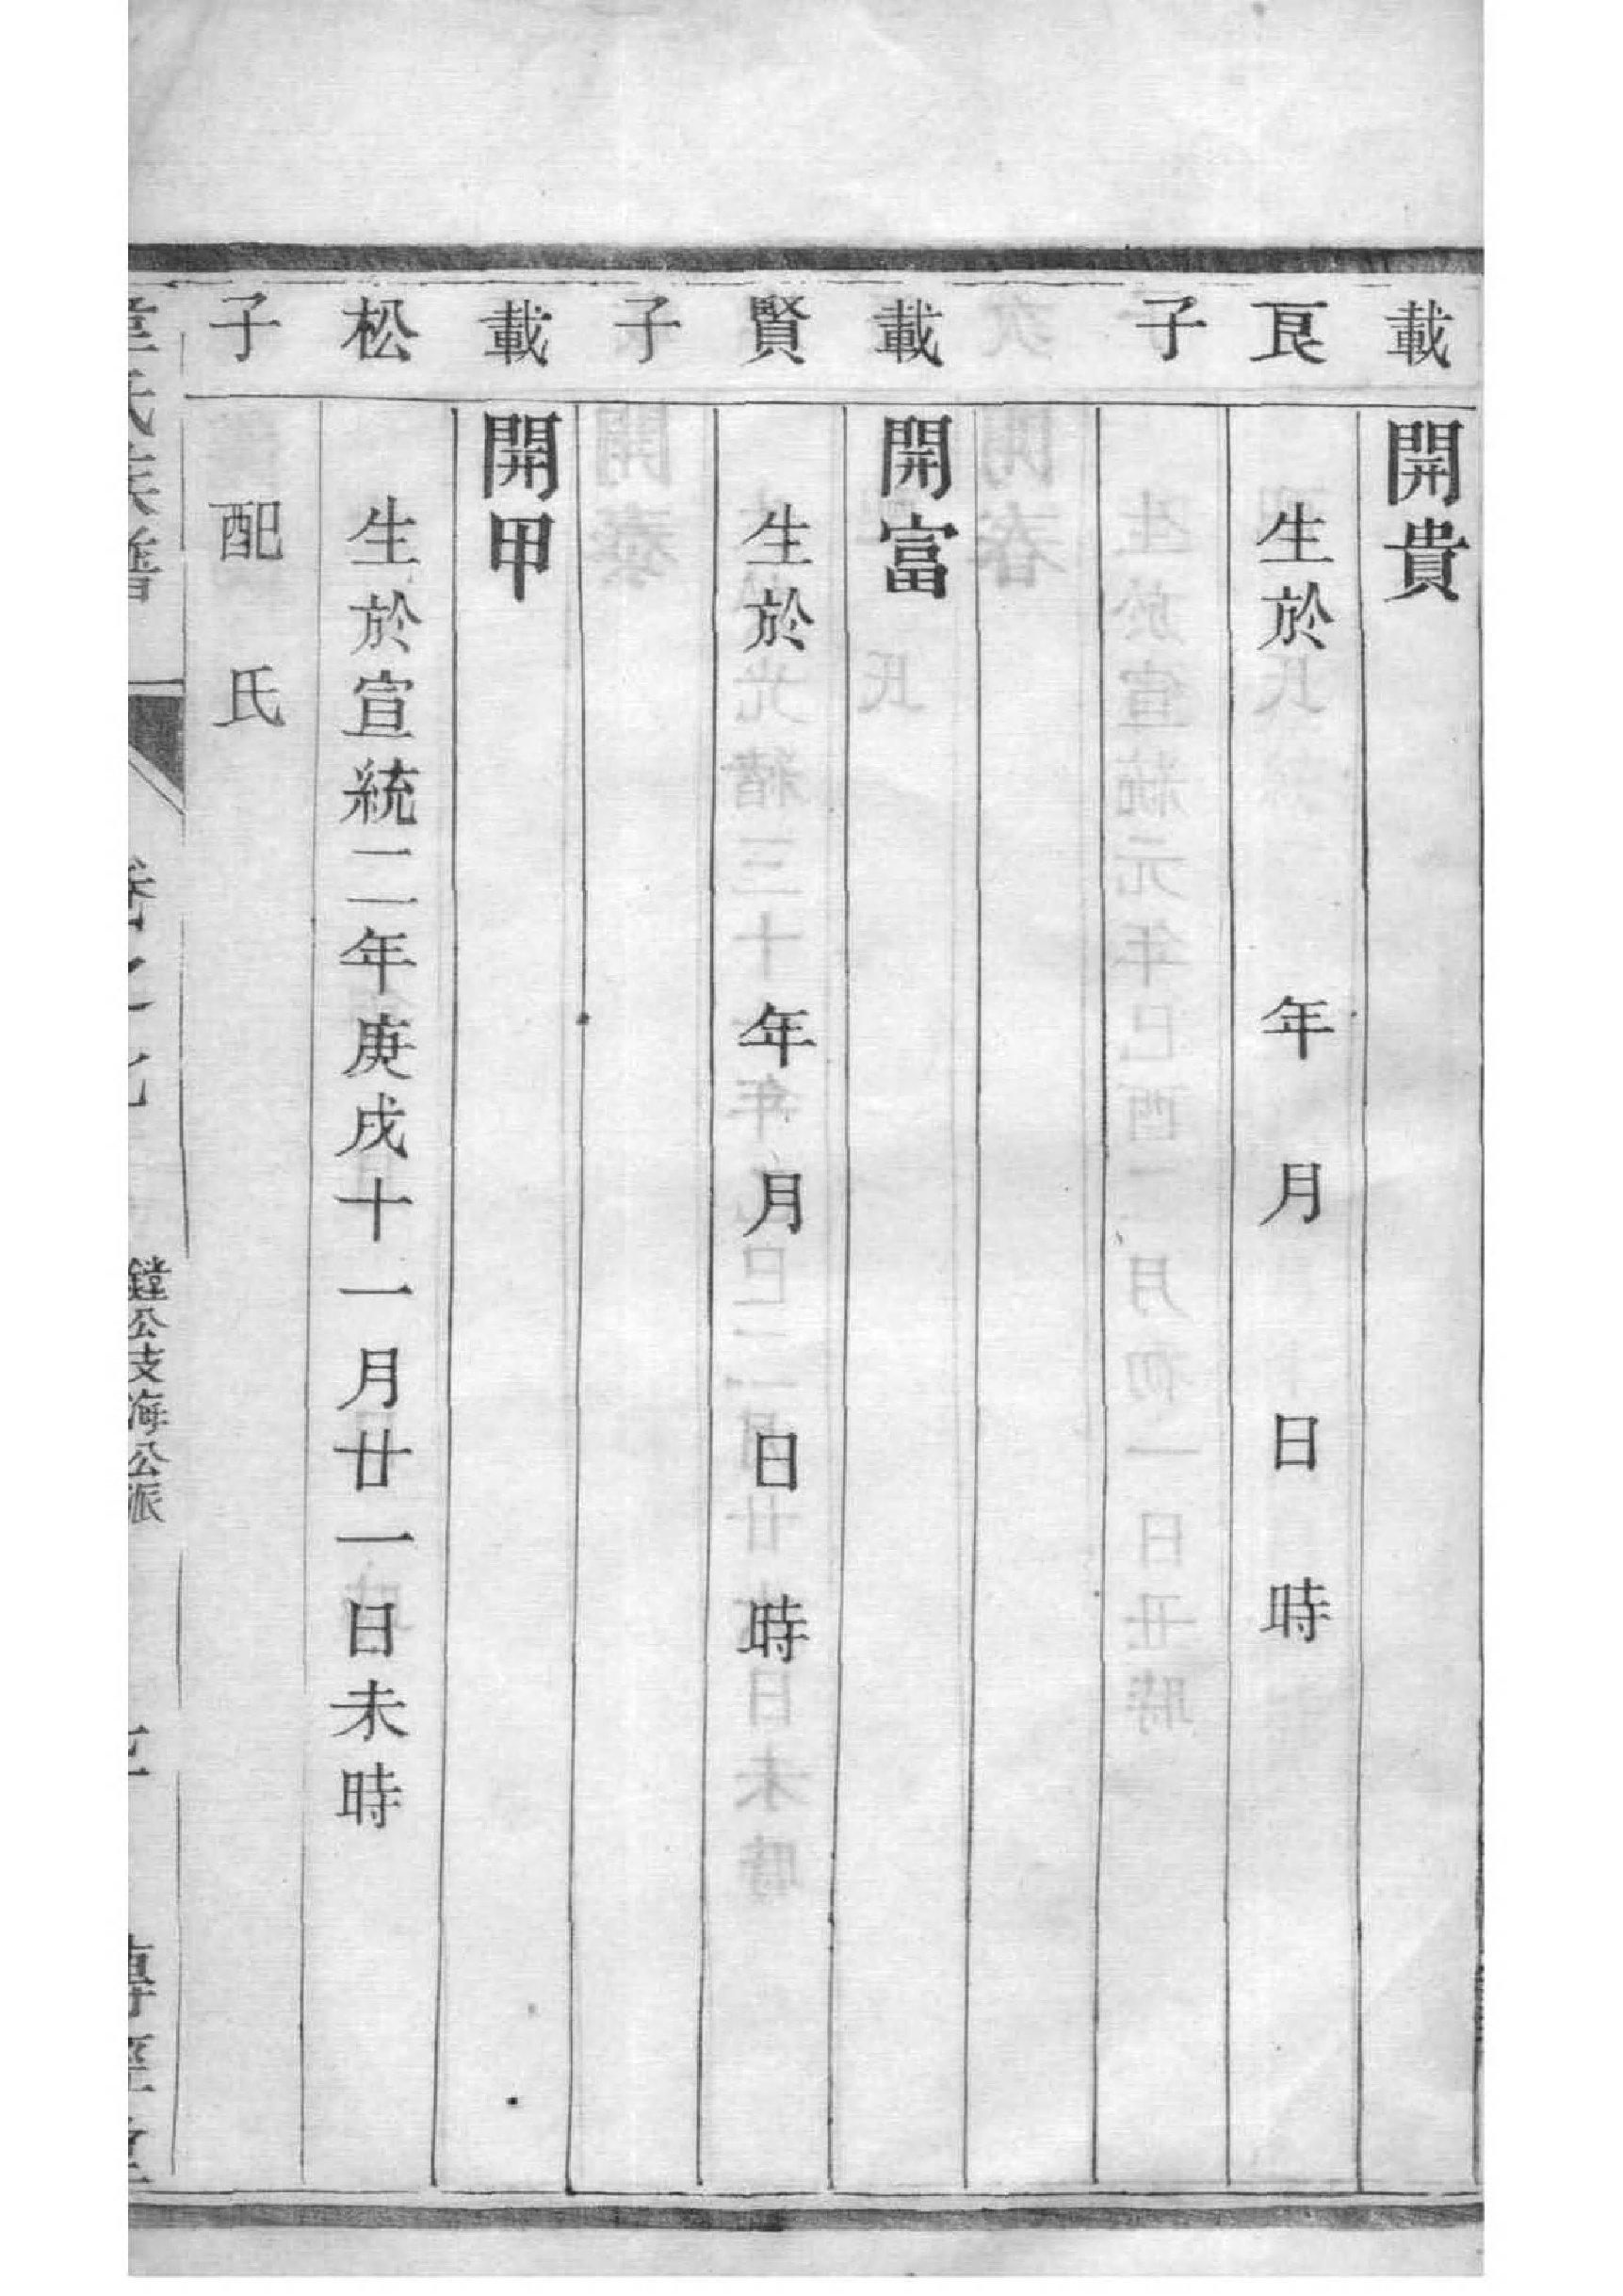 載 開貴
良 生於 年 月 日 時
子
載 開富
賢 生於 年 月 日 時
子
載 開甲
松 生於宣統二年庚戌十一月廿一日未時
子 配 氏
氏族譜
鏜公支海公派